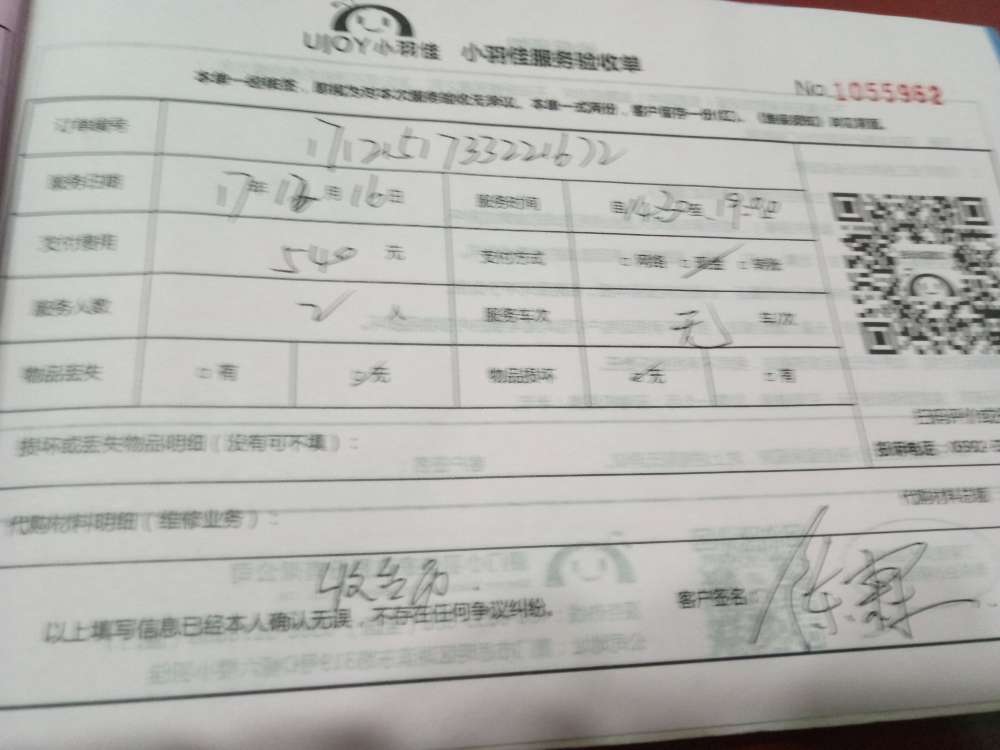 UJOY小羽佳 小羽佳服务验收单
No. 1055962
本单一经签签，即视为对本次服务验收无异议。本单一式两份，客户留存一份(红)。
订单编号 171251733221672
服务日期 17年12月16日 服务时间 自14:30至19:00
支付费用 540元 支付方式 网络 现金 转账
服务人数 2人 服务车次 无 车/次
物品丢失 有 无 物品损坏 无 有
损坏或丢失物品明细（没有可不填）：
代购材料明细（维修业务）：
代购材料总额
以上填写信息已经本人确认无误，不存在任何争议纠纷。
客户签名